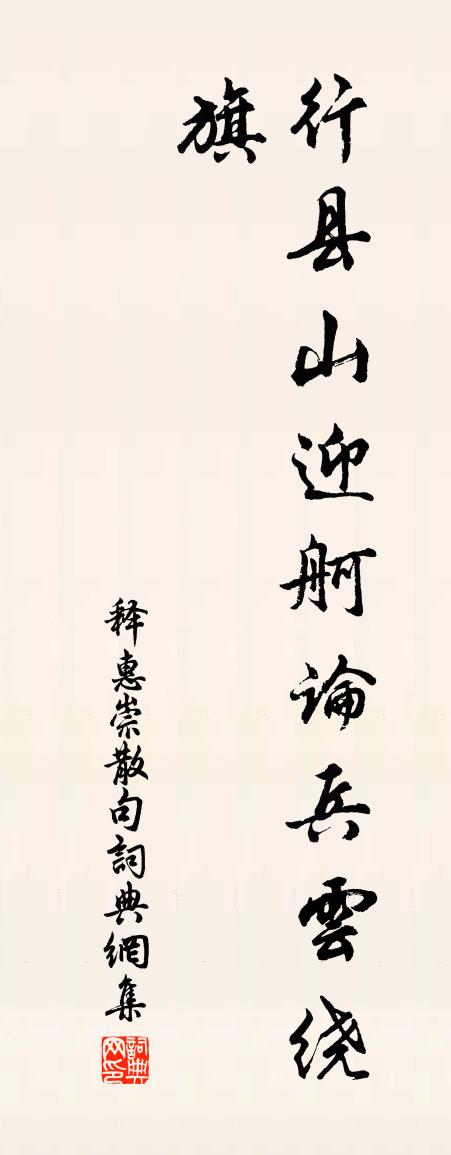 行县山迎舸論兵雲绕
旗
释惠崇散句詞典網集
詞典
网印